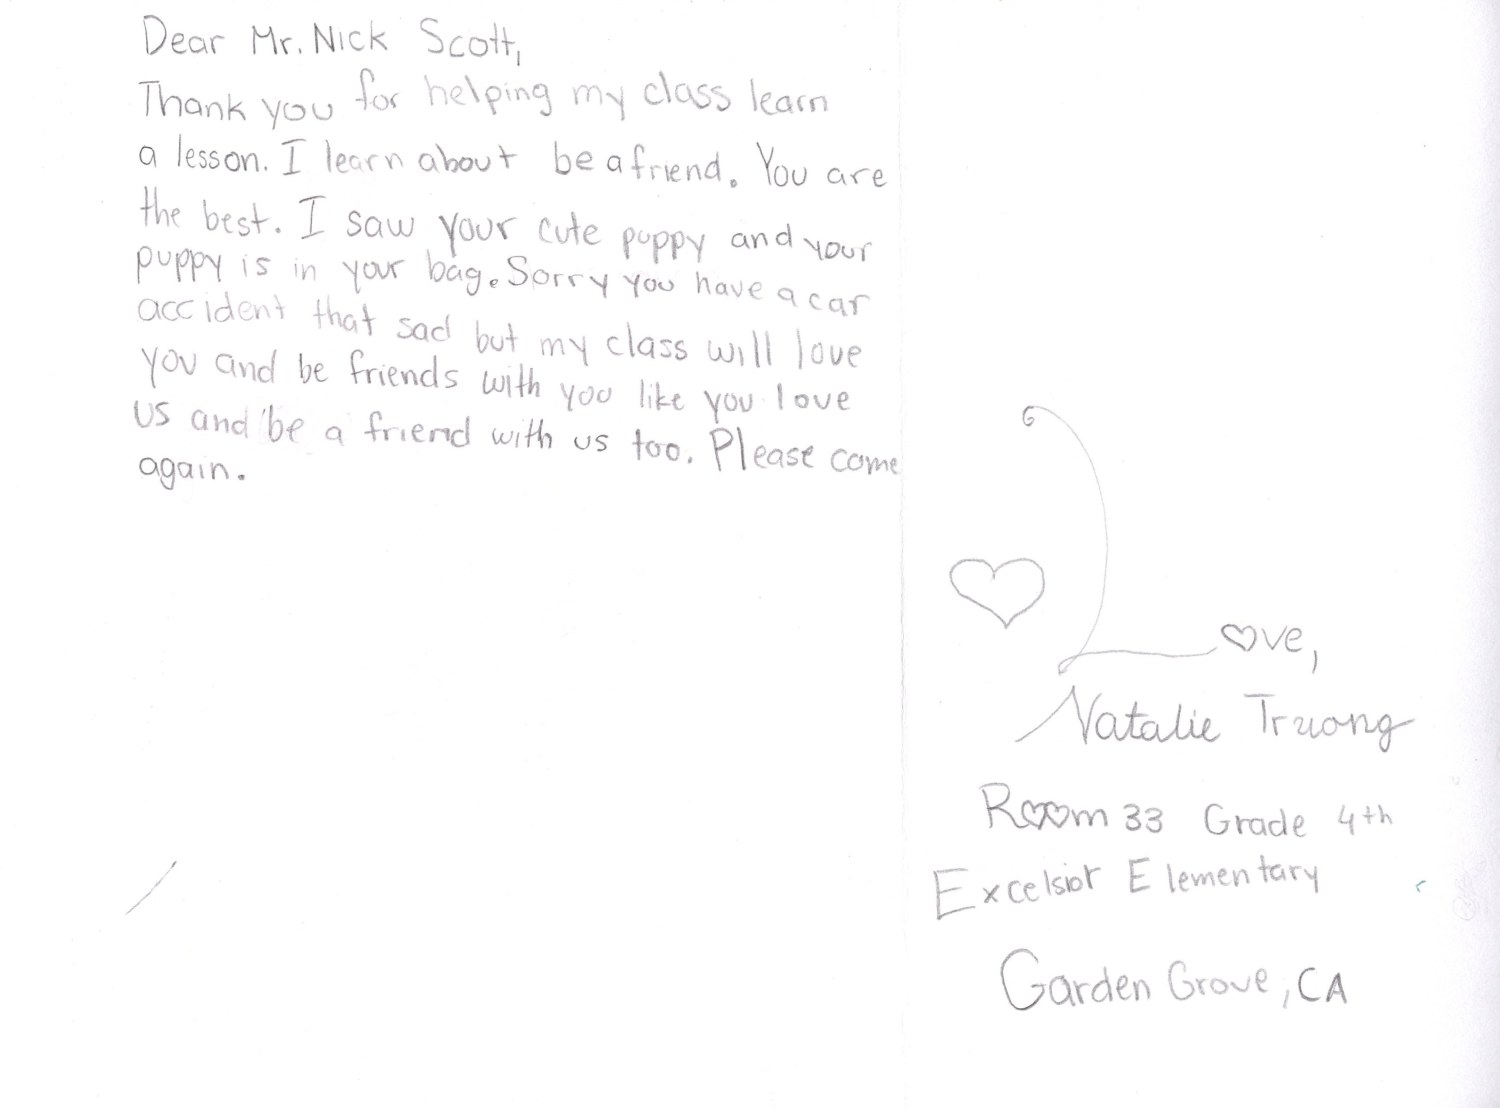 Dear Mr. Nick Scott,
Thank you for helping my class learn
a lesson. I learn about be a friend. You are
the best. I saw your cute puppy and your
puppy is in your bag. Sorry you have a car
accident that sad but my class will love
you and be friends with you like you love
us and be a friend with us too. Please come
again.
Love,
Natalie Truong
Room 33 Grade 4th
Excelsior Elementary
Garden Grove, CA